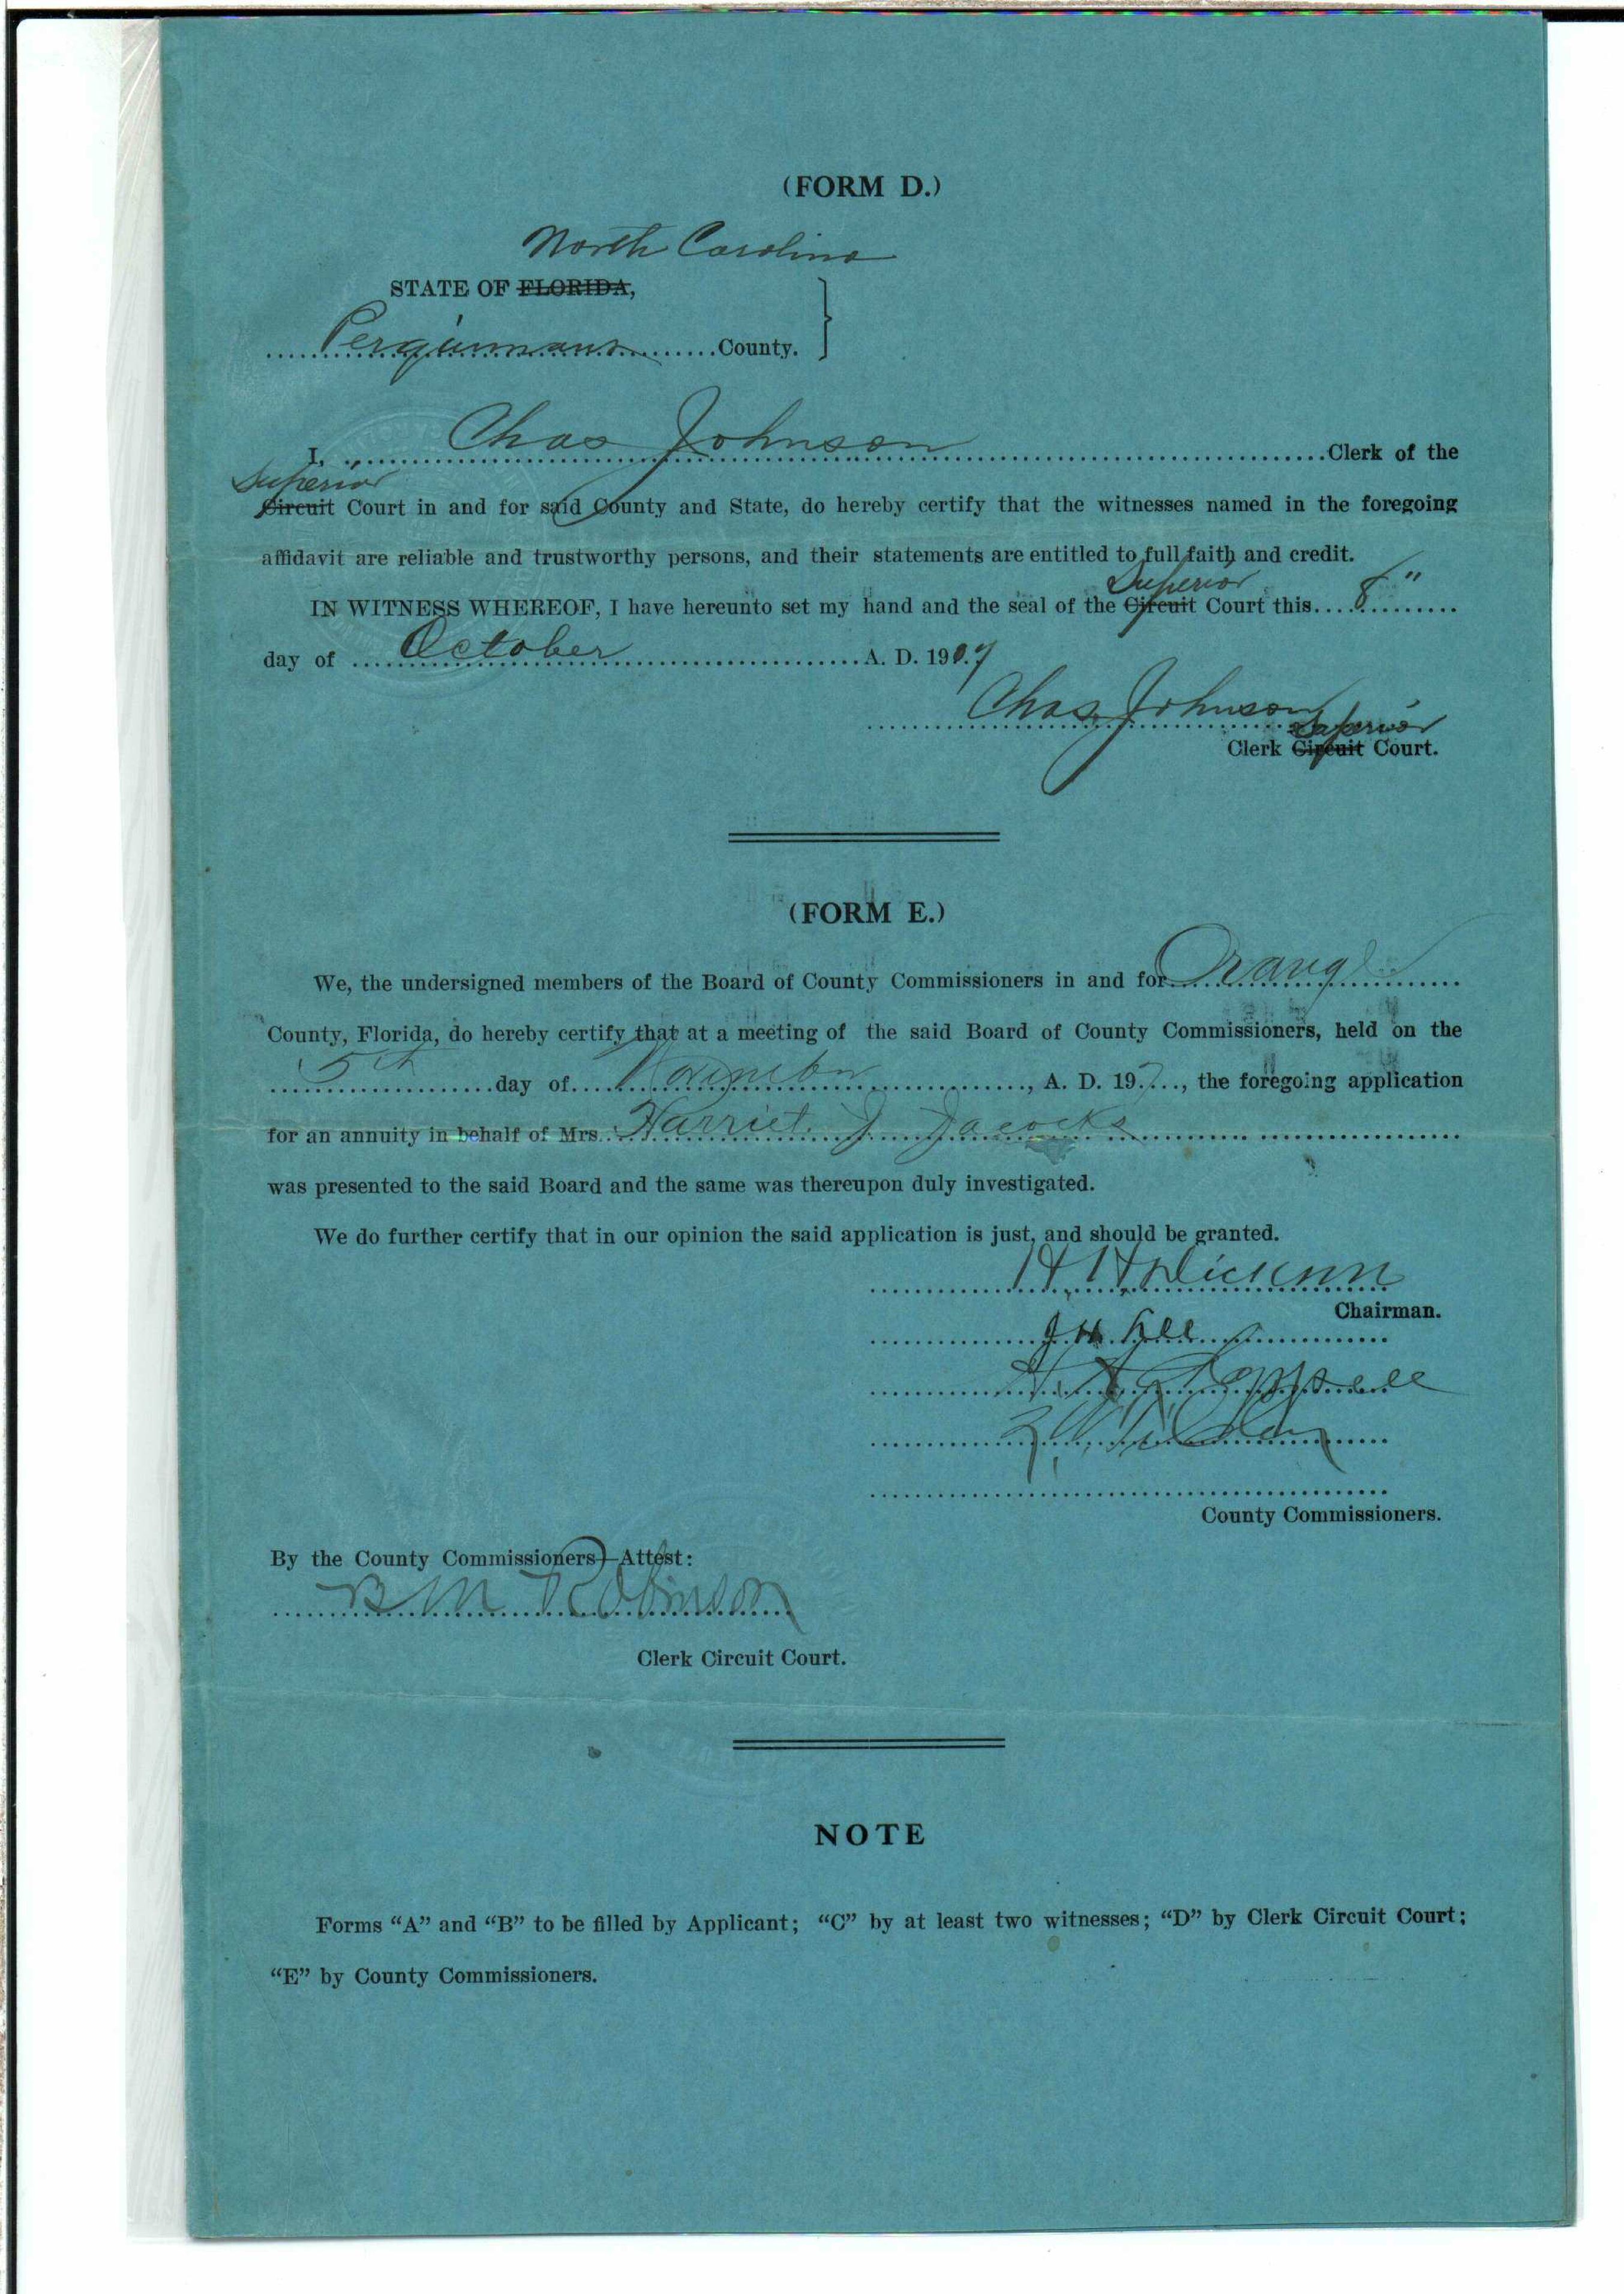 (FORM D.)
North Carolina
STATE OF FLORIDA,
Perquimans County.
I, Chas Johnson Clerk of the
Superior
Circuit Court in and for said County and State, do hereby certify that the witnesses named in the foregoing
affidavit are reliable and trustworthy persons, and their statements are entitled to full faith and credit.
Superior
IN WITNESS WHEREOF, I have hereunto set my hand and the seal of the Circuit Court this 8"
day of October A. D. 1907
Chas. Johnson
Superior
Clerk Circuit Court.
(FORM E.)
We, the undersigned members of the Board of County Commissioners in and for Orange
County, Florida, do hereby certify that at a meeting of the said Board of County Commissioners, held on the
5th day of November, A. D. 197, the foregoing application
for an annuity in behalf of Mrs. Harriet J Jacocks
was presented to the said Board and the same was thereupon duly investigated.
We do further certify that in our opinion the said application is just, and should be granted.
H H Dickson
Chairman.
J. H. Lee
County Commissioners.
By the County Commissioners—Attest:
B M Robinson
Clerk Circuit Court.
NOTE
Forms “A” and “B” to be filled by Applicant; “C” by at least two witnesses; “D” by Clerk Circuit Court;
“E” by County Commissioners.